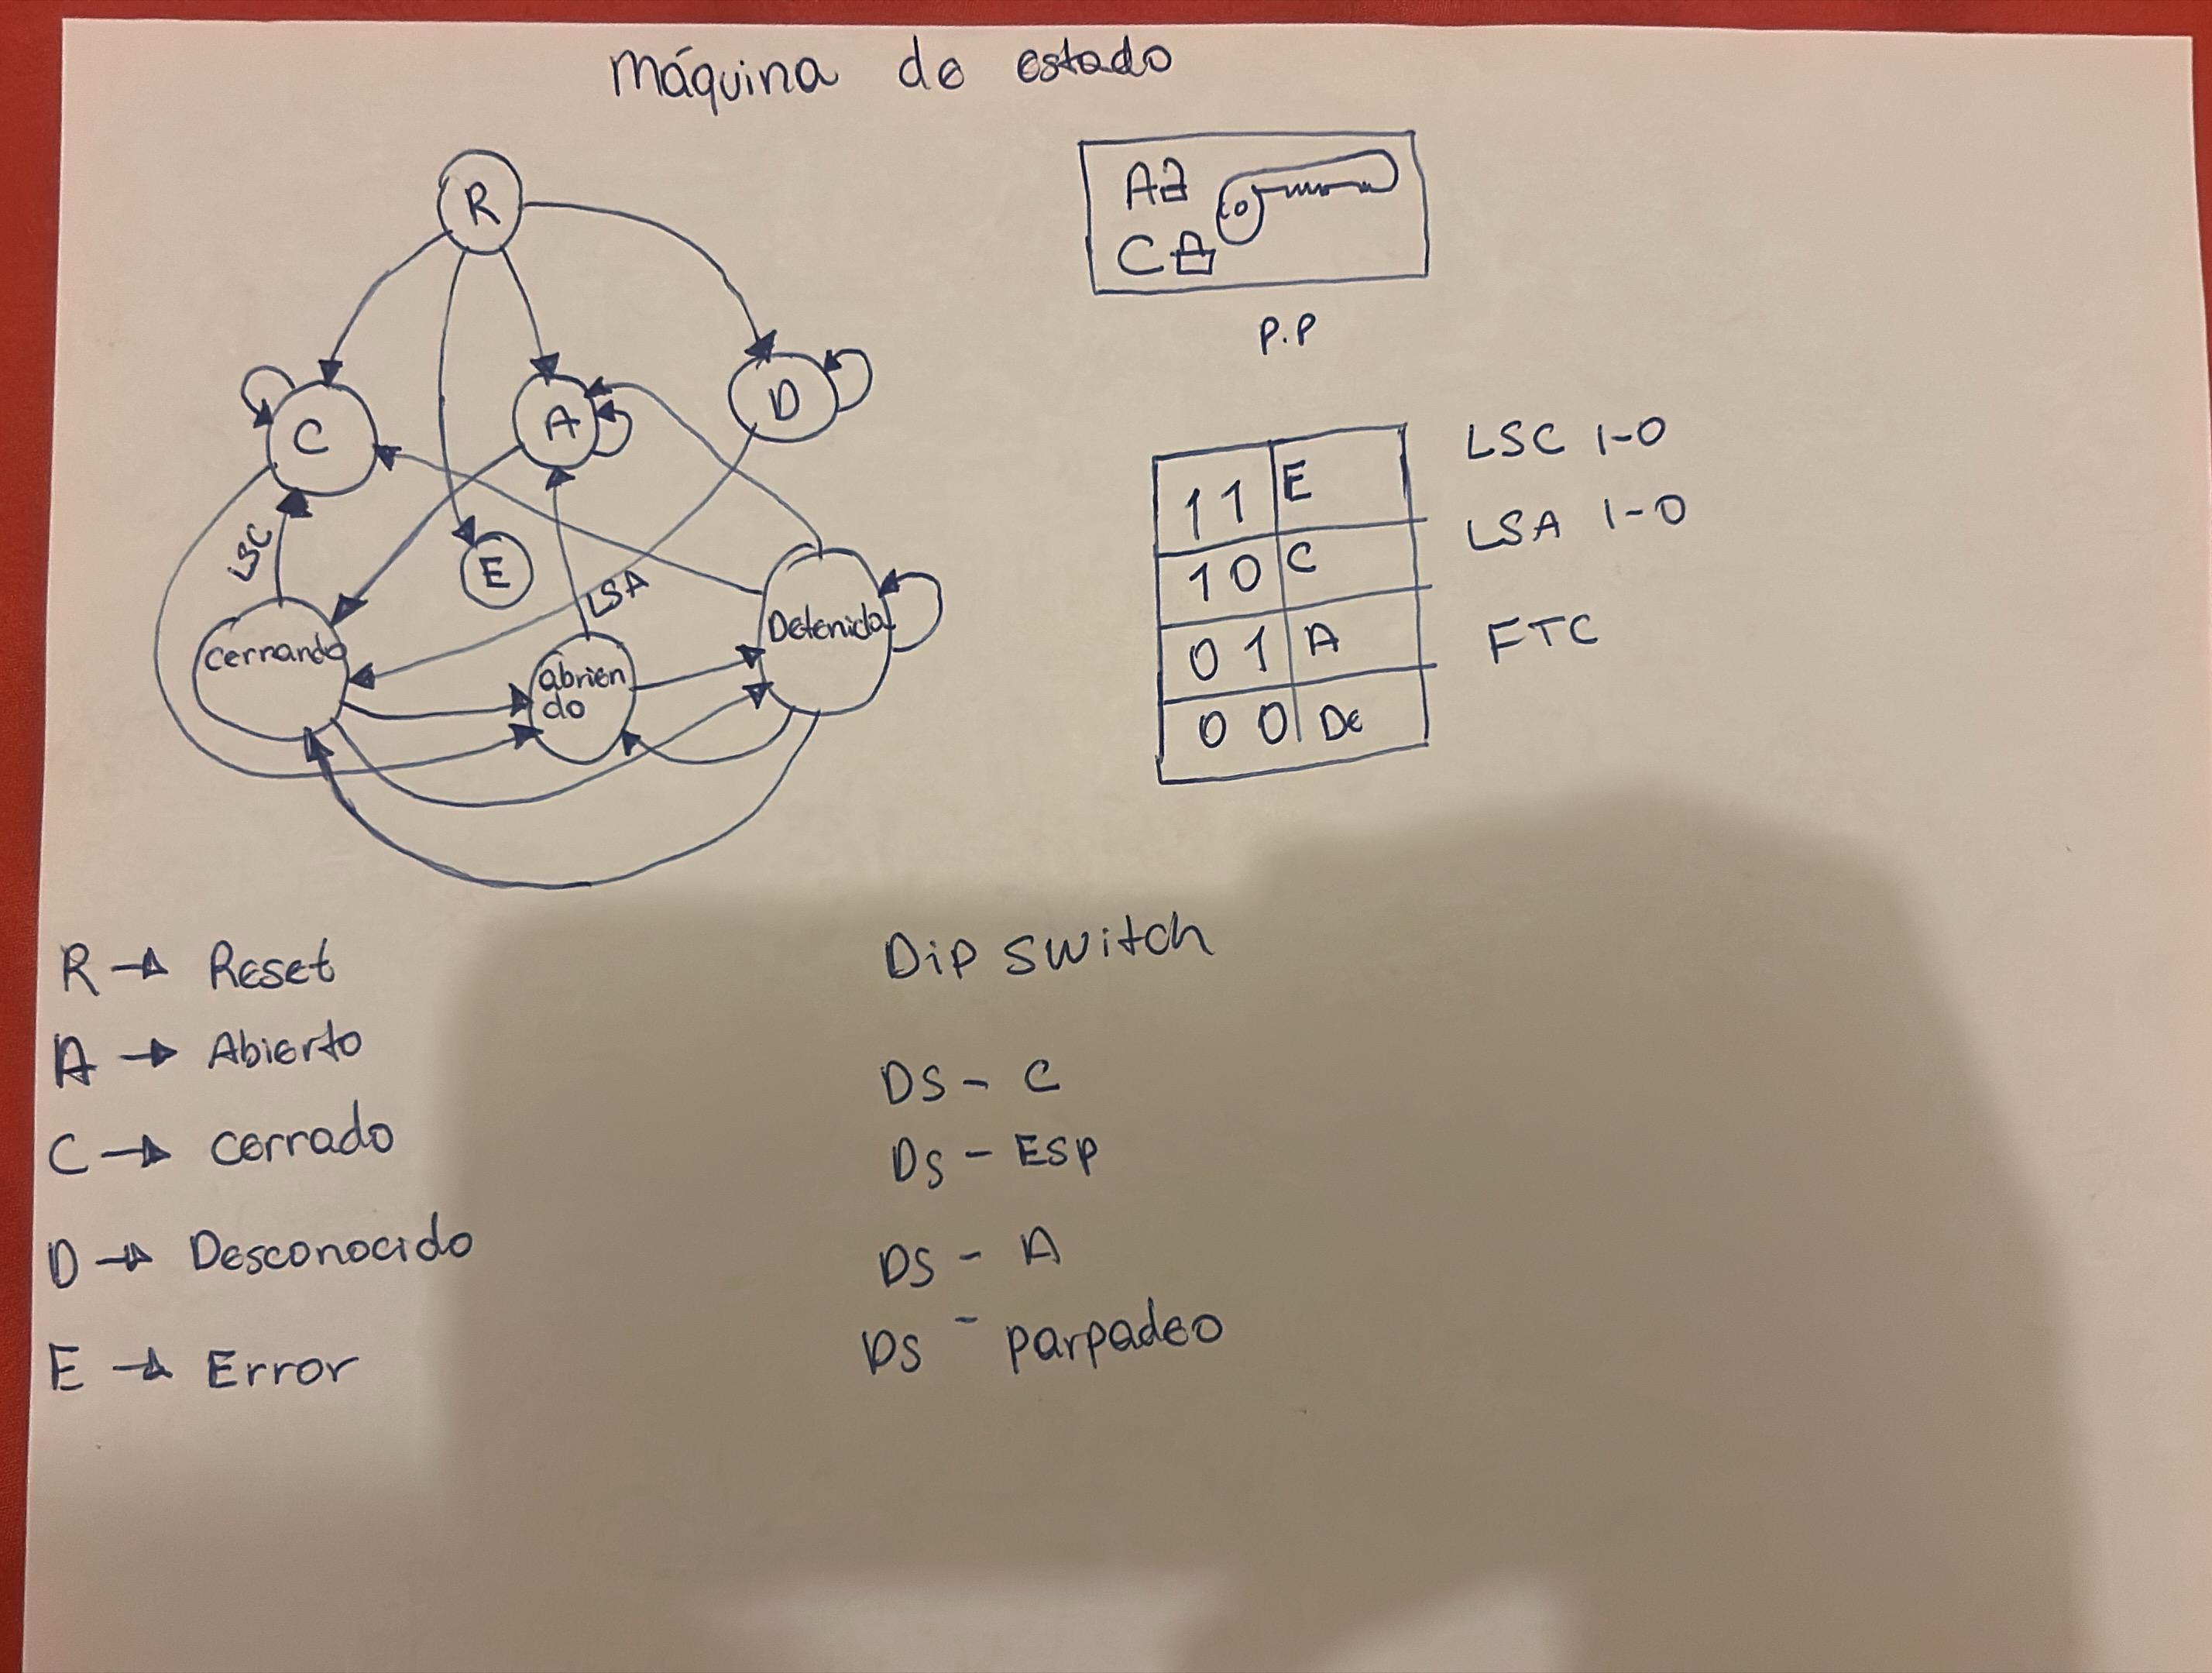 Máquina de estado
R
C
A
D
E
LSC
LSA
Cerrando
abrien
do
Detenido
A
C
P.P
1 1 E
1 0 C
0 1 A
0 0 De
LSC 1-0
LSA 1-0
FTC
R → Reset
A → Abierto
C → Cerrado
D → Desconocido
E → Error
Dip switch
DS - C
DS - Esp
DS - A
DS - parpadeo